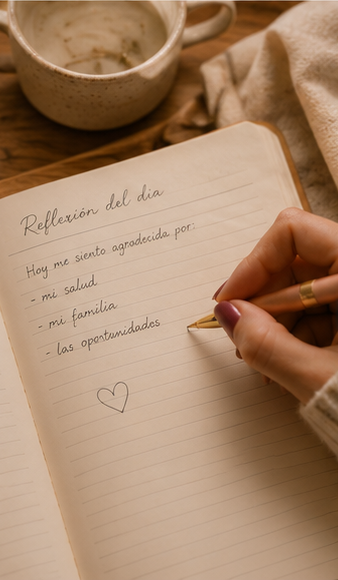 Reflexión del dia
Hoy me siento agradecida por:
- mi salud
- mi familia
- las oportunidades